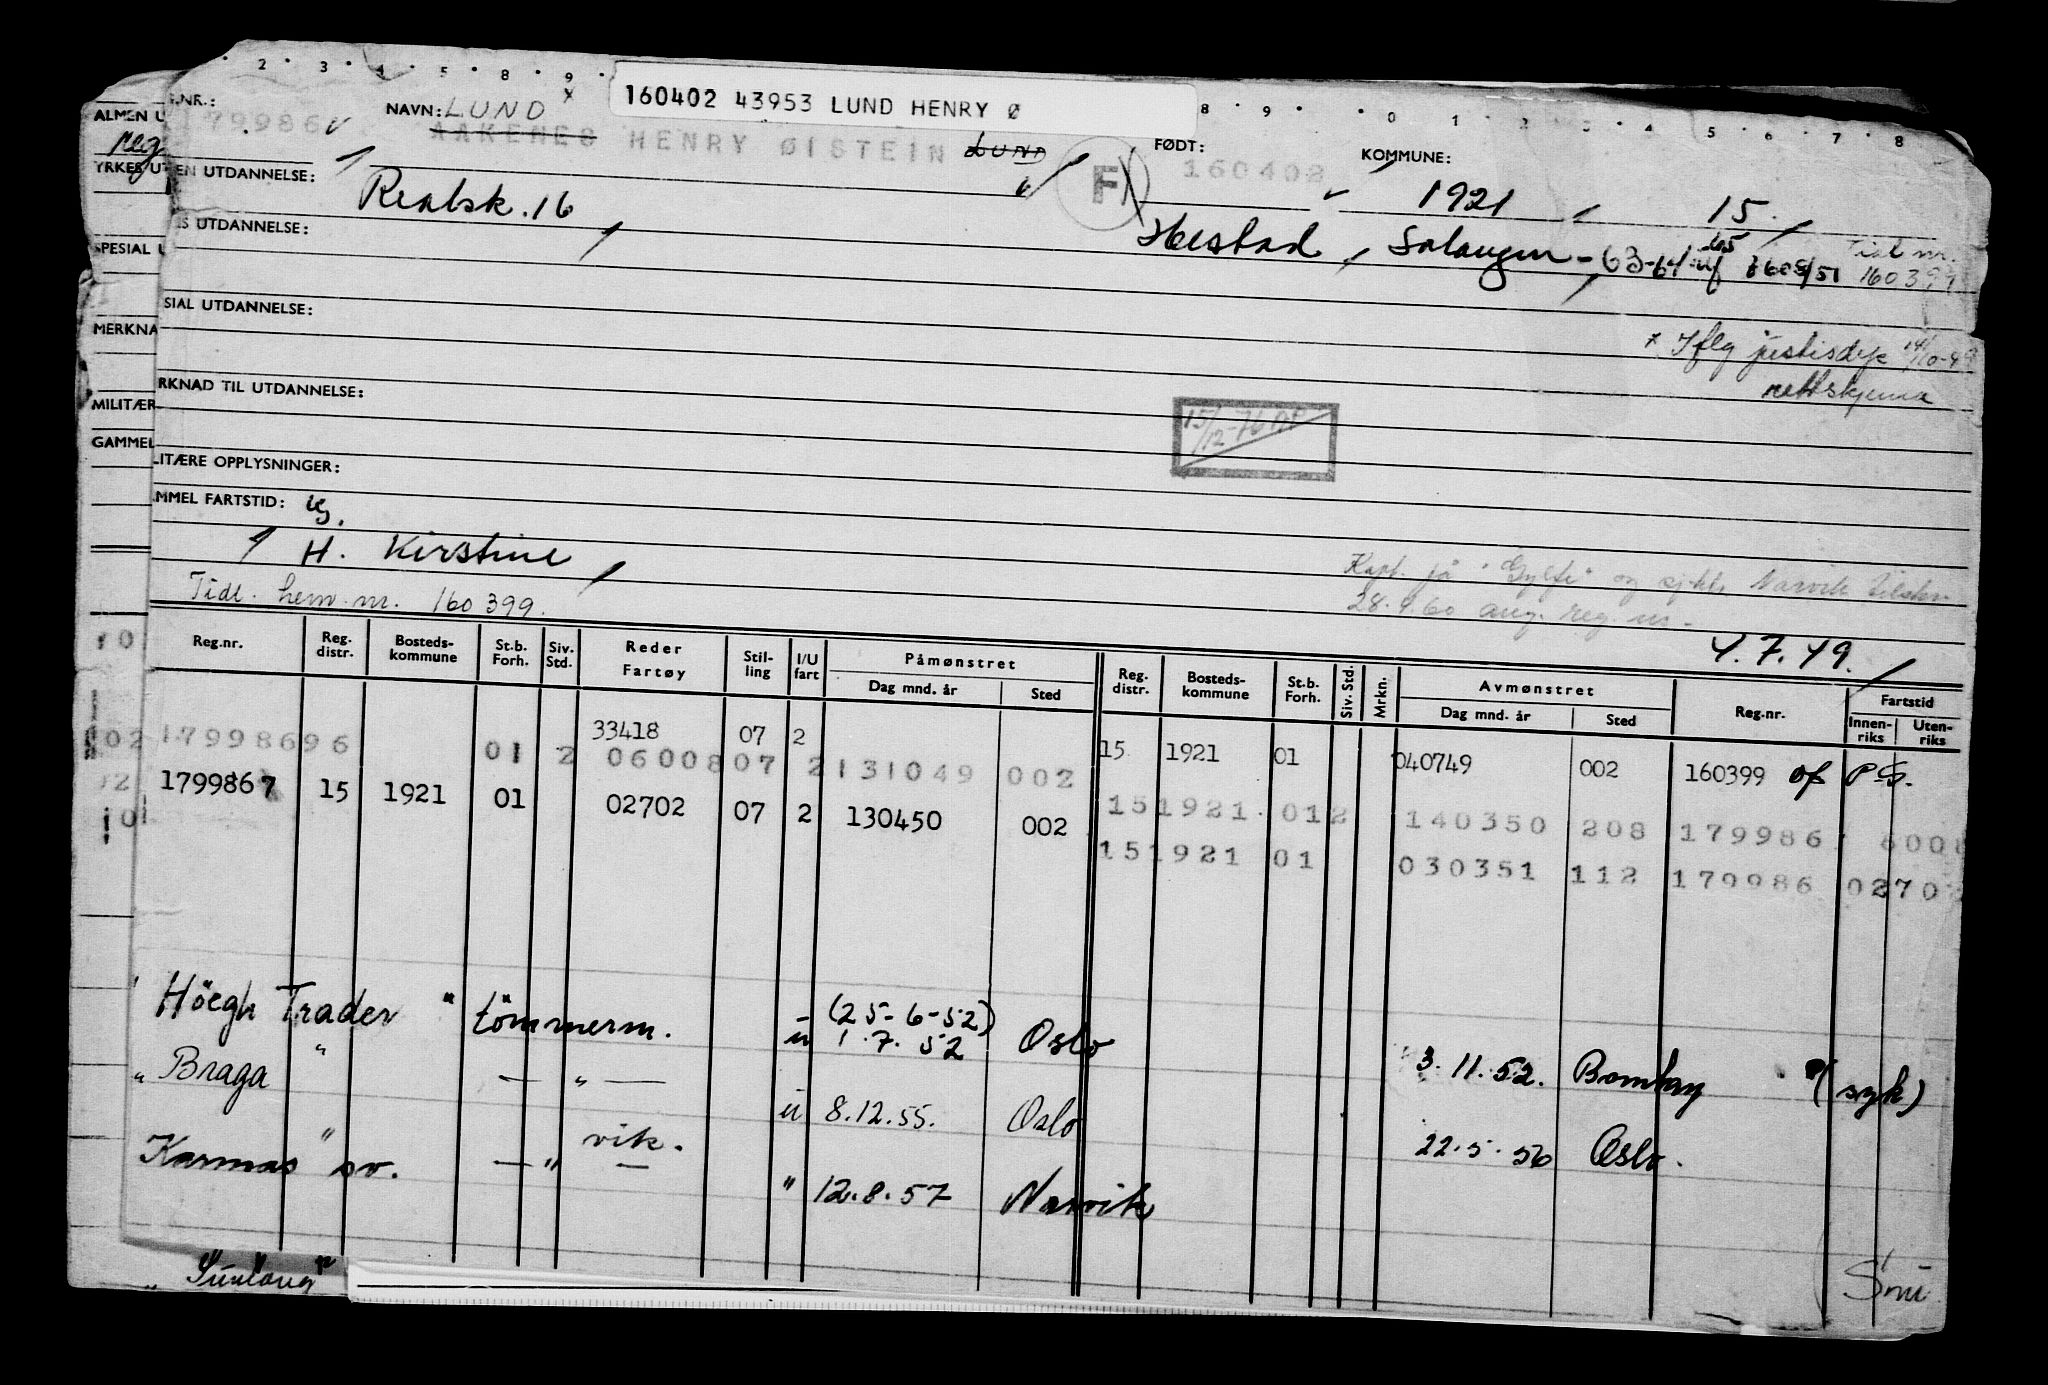 2 3 4 5 8 9
160402 43953 LUND HENRY Ø
8 9 0 1 2 3 4 5 6 7 8
ALMEN U
.NR.: 79986
NAVN: LUND x
AAKENES HENRY ØISTEIN LUND
F
FØDT: 160402
KOMMUNE:
1921 15.
reg
YRKES UT
EN UTDANNELSE: Realsk. 16
Hestad, Salangen - 63-64
Tidl nr. 160399
IS UTDANNELSE:
SPESIAL U
SIAL UTDANNELSE:
x Iflg justisdep 14/10-49
rettskjema
MERKNA
RKNAD TIL UTDANNELSE:
15/12-76
MILITÆR
LITÆRE OPPLYSNINGER:
GAMMEL
MMEL FARTSTID:
H. Kirstine
Kapt. på "Gylfe" og Narvik
28.9.60 ang. reg nr.
Tidl. hem. nr. 160399.
4.7.49.
Reg.nr. Reg. distr. Bosteds-kommune St.b. Forh. Siv. Std. Reder Fartøy Stil-ling I/U fart Påmønstret Dag mnd. år Sted Reg. distr. Bosteds-kommune St.b. Forh. Siv. Std. Mrkn. Avmønstret Dag mnd. år Sted Reg.nr. Fartstid Innen-riks Uten-riks
33418 07 2 15 1921 01 040749 002 160399 of
1799869 6 01 2 06008 07 2 131049 002 15 1921 01 2 140350 208 179986 6008
179986 7 15 1921 01 02702 07 2 130450 002 15 1921 01 030351 112 179986 0270
Höegh Trader " tömmerm. u (25-6-52) 1.7.52 Oslo 3.11.52. Bombay (syk)
" Braga " — " — u 8.12.55. Oslo 22.5.56 Oslo.
Karmas " sv. — " — vik. " 12.8.57 Narvik